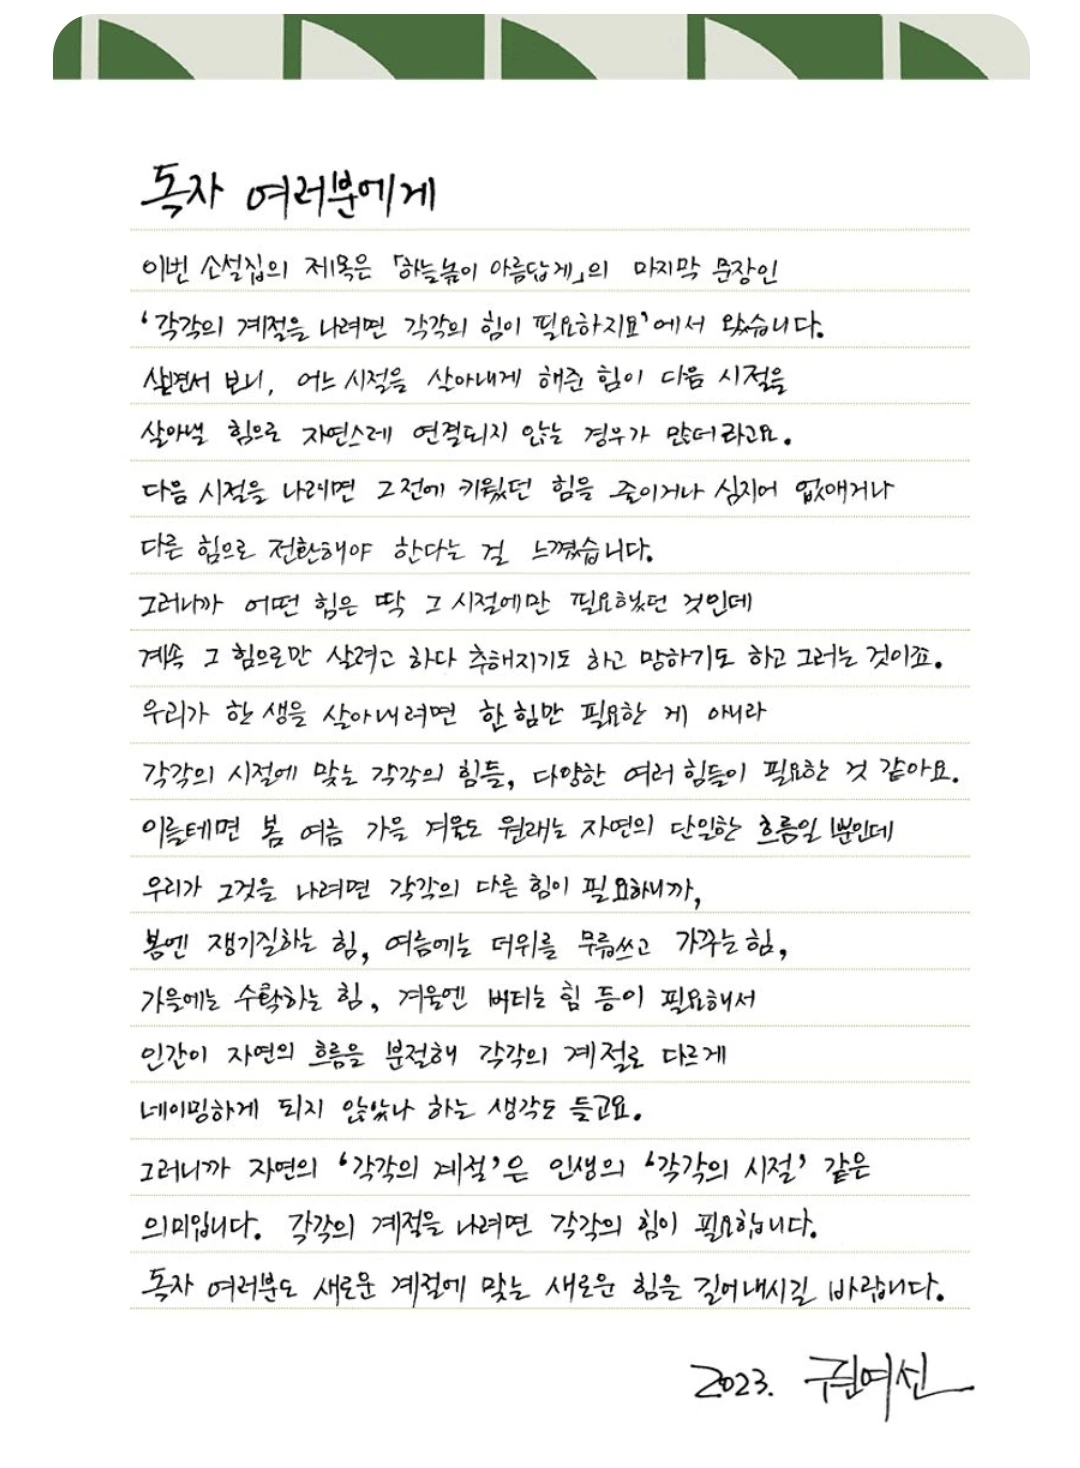 독자 여러분에게
이번 소설집의 제목은 「하늘높이 아름답게」의 마지막 문장인
‘각각의 계절을 나려면 각각의 힘이 필요하지요’에서 왔습니다.
살면서 보니, 어느 시절을 살아내게 해준 힘이 다음 시절을
살아낼 힘으로 자연스레 연결되지 않는 경우가 많더라고요.
다음 시절을 나려면 그전에 키웠던 힘을 줄이거나 심지어 없애거나
다른 힘으로 전환해야 한다는 걸 느꼈습니다.
그러니까 어떤 힘은 딱 그 시절에만 필요했던 것인데
계속 그 힘으로만 살려고 하다 추해지기도 하고 망하기도 하고 그러는 것이죠.
우리가 한 생을 살아내려면 한 힘만 필요한 게 아니라
각각의 시절에 맞는 각각의 힘들, 다양한 여러 힘들이 필요한 것 같아요.
이를테면 봄 여름 가을 겨울도 원래는 자연의 단일한 흐름일 뿐인데
우리가 그것을 나려면 각각의 다른 힘이 필요하니까,
봄엔 쟁기질하는 힘, 여름에는 더위를 무릅쓰고 가꾸는 힘,
가을에는 수확하는 힘, 겨울엔 버티는 힘 등이 필요해서
인간이 자연의 흐름을 분절해 각각의 계절로 다르게
네이밍하게 되지 않았나 하는 생각도 들고요.
그러니까 자연의 ‘각각의 계절’은 인생의 ‘각각의 시절’ 같은
의미입니다. 각각의 계절을 나려면 각각의 힘이 필요합니다.
독자 여러분도 새로운 계절에 맞는 새로운 힘을 길어내시길 바랍니다.
2023. 권여선